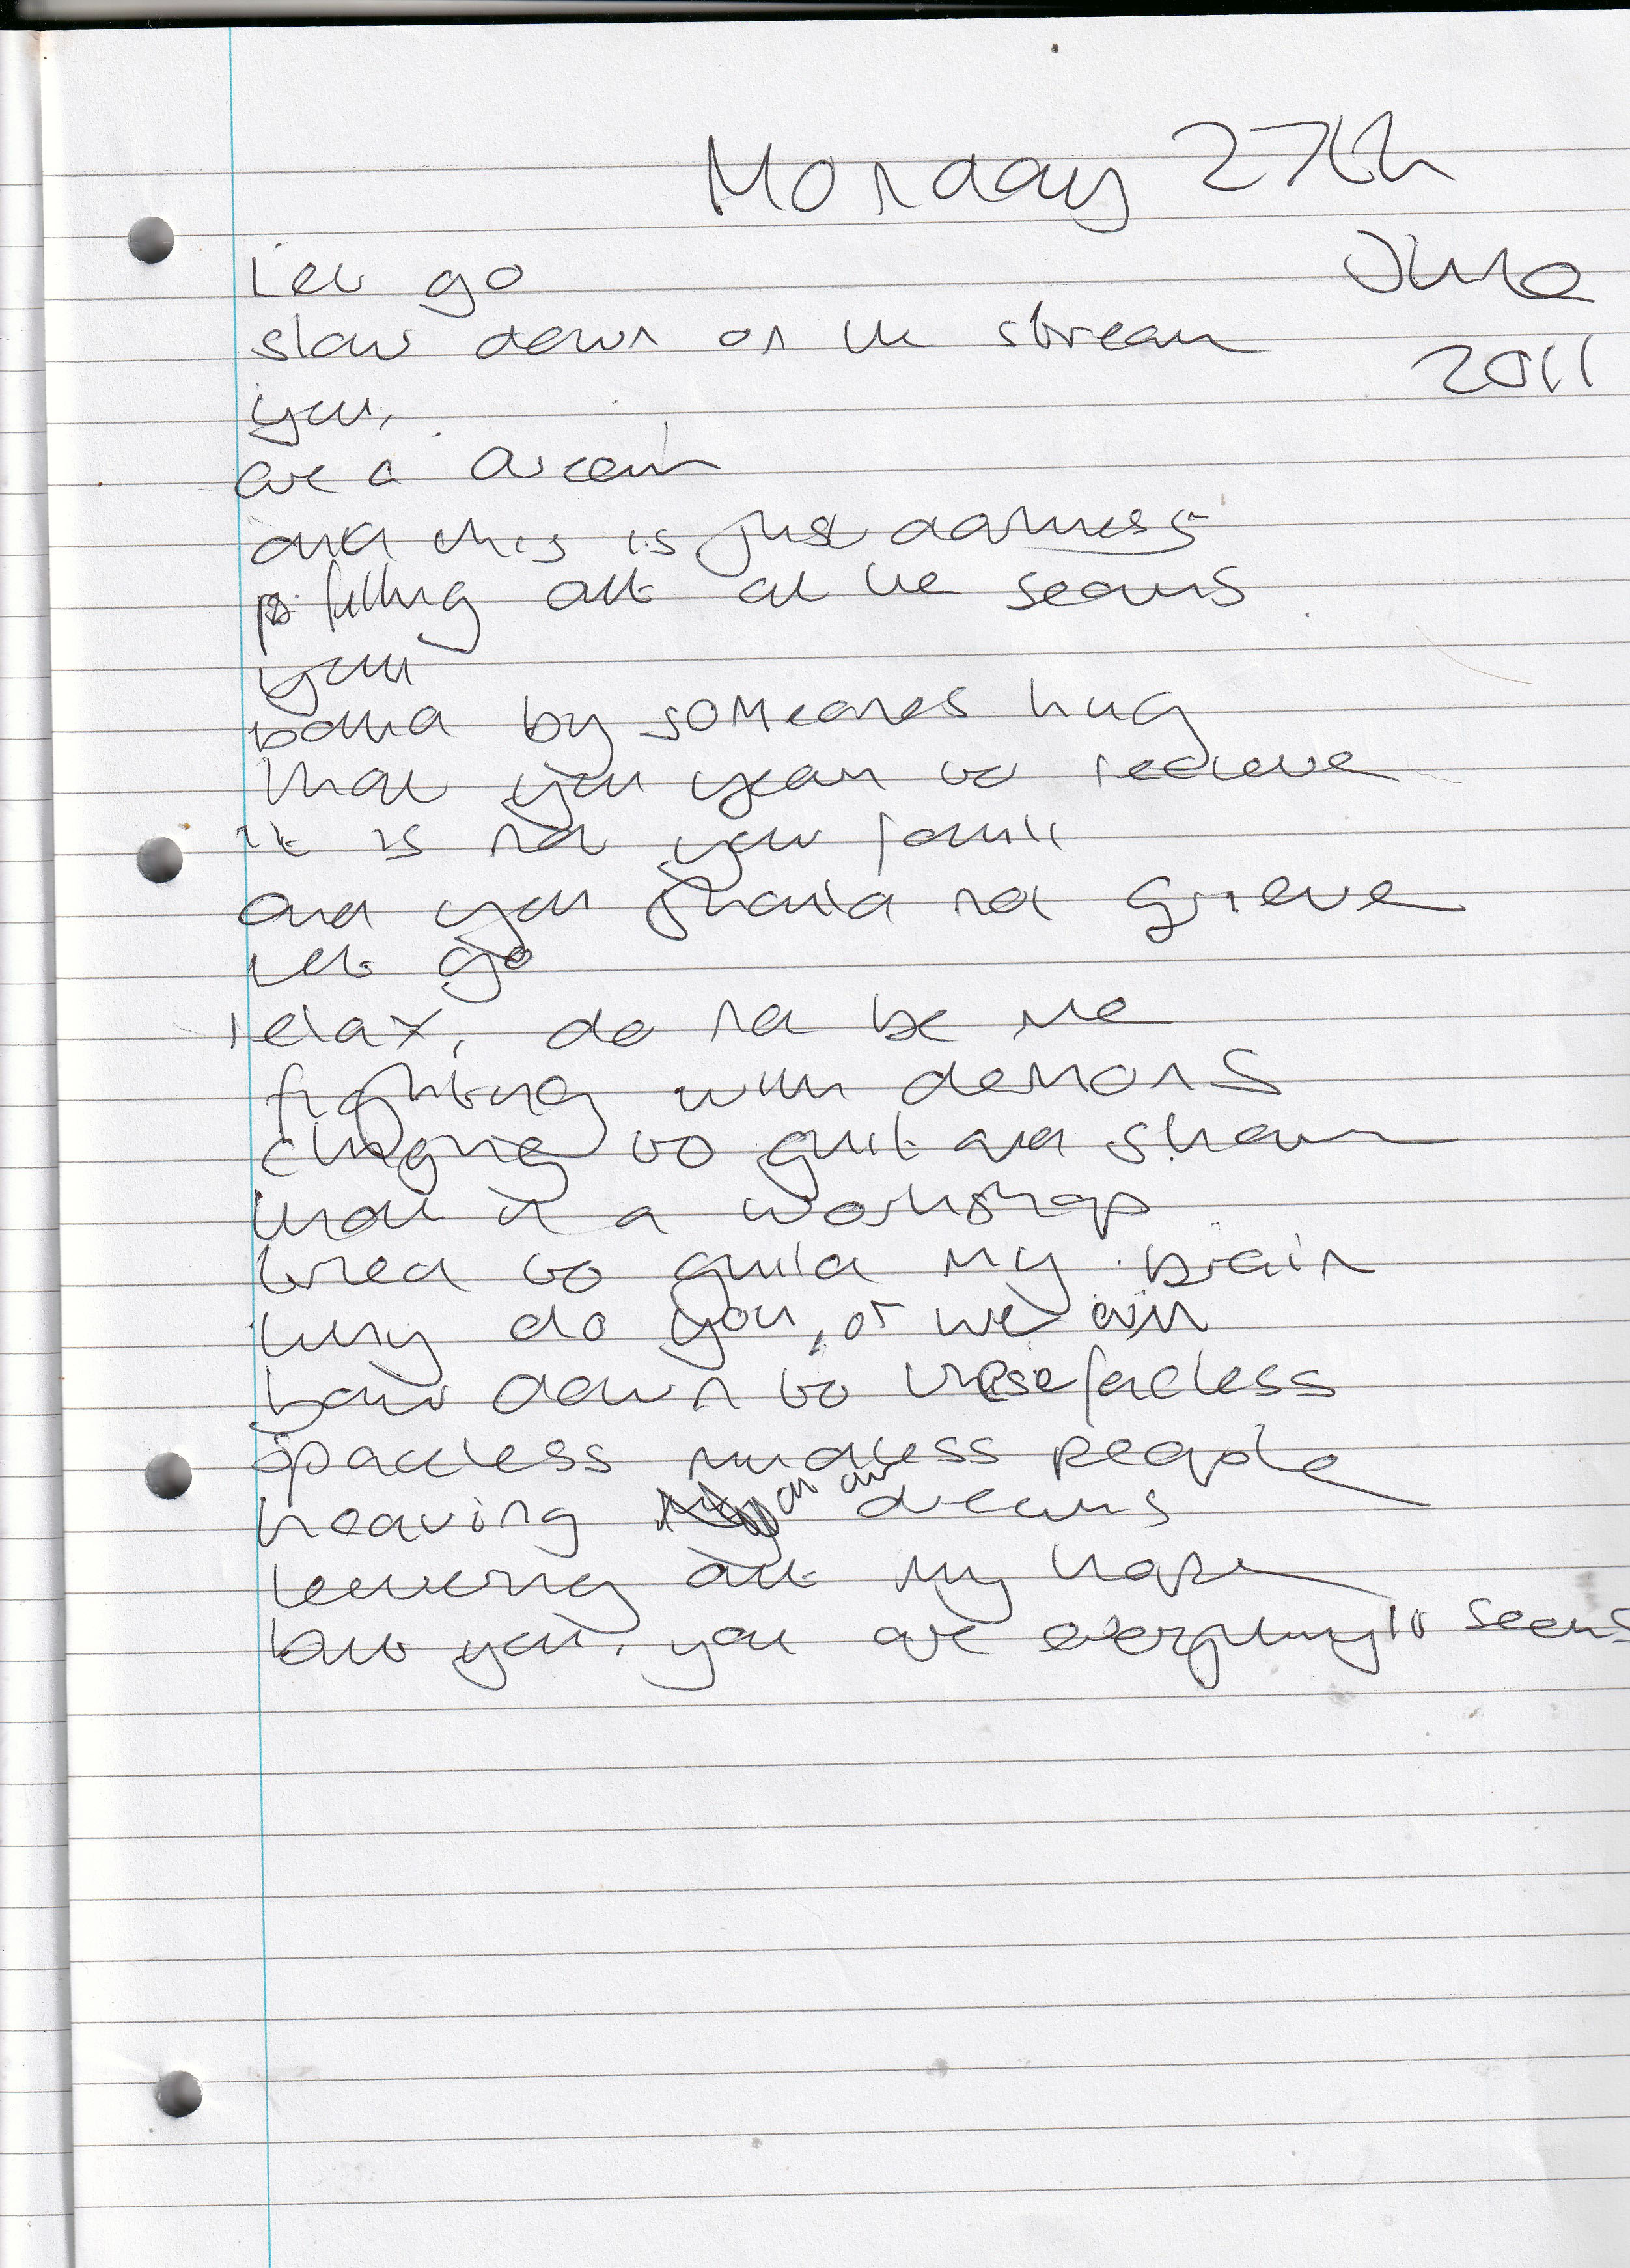 Monday 27th
June
2011
Let go
slow down on the stream
you,
are a dream
and this is just darkness
falling out at the seams
you
bound by someones hug
that you yearn to recieve
it is not your fault
and you should not grieve
let go
relax, do not be me
fighting with demons
clinging to guilt and shame
that in a workshop
tried to guild my brain
why do you, or we
bow down to these faceless
spaceless mindless people
hearing our dreams
leaving out my hope
but you, you are everything it seems